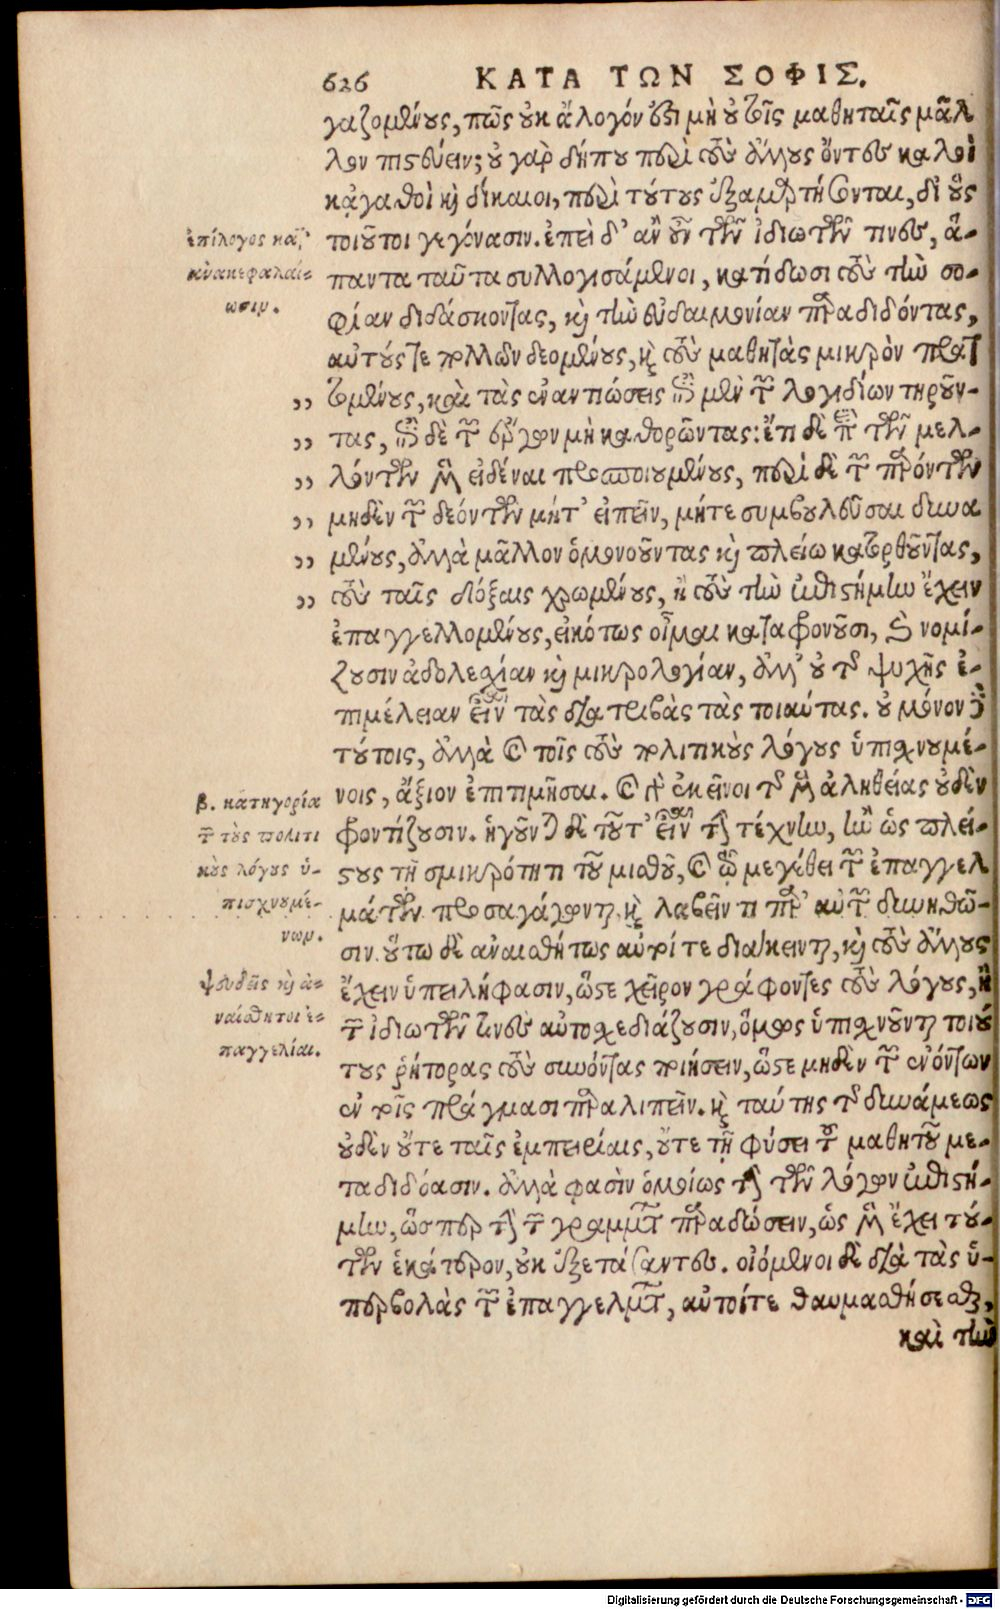 626 ΚΑΤΑ ΤΩΝ ΣΟΦΙΣ.
γαζομένους, πῶς οὐκ ἄλογόν ἐστι μὴ οὐ τοῖς μαθηταῖς μᾶλ
λον πιστεύειν; οὐ γὰρ δήπου περὶ τοὺς ἄλλους ὄντες καλοὶ
κἀγαθοὶ καὶ δίκαιοι, περὶ τούτους ἐξαμαρτήσονται, δι' οὓς
τοιοῦτοι γεγόνασιν. ἐπειδ' ἂν οὖν τῶν ἰδιωτῶν τινες, ἅ-
παντα ταῦτα συλλογισάμενοι, κατίδωσι τοὺς τὴν σο-
φίαν διδάσκοντας, καὶ τὴν εὐδαιμονίαν παραδιδόντας,
αὐτούς τε πολλῶν δεομένους, καὶ τοὺς μαθητὰς μικρὸν πρατ
„ τομένους, καὶ τὰς ἐναντιώσεις ἐπὶ μὲν τῶν λογιδίων τηροῦν-
„ τας, ἐπὶ δὲ τῶν ἔργων μὴ καθορῶντας: ἔτι δὲ περὶ τῶν μελ-
„ λόντων μὲν εἰδέναι προσποιουμένους, περὶ δὲ τῶν παρόντων
„ μηδὲν τῶν δεόντων μήτ' εἰπεῖν, μήτε συμβουλεῦσαι δυνα
„ μένους, ἀλλὰ μᾶλλον ὁμονοοῦντας καὶ πλείω κατορθοῦντας,
„ τοὺς ταῖς δόξαις χρωμένους, ἢ τοὺς τὴν ἐπιστήμην ἔχειν
ἐπαγγελλομένους, εἰκότως οἶμαι καταφρονοῦσι, καὶ νομί-
ζουσιν ἀδολεσχίαν καὶ μικρολογίαν, ἀλλ' οὐ τῆς ψυχῆς ἐ-
πιμέλειαν εἶναι τὰς διατριβὰς τὰς τοιαύτας. οὐ μόνον δὲ
τούτοις, ἀλλὰ καὶ τοῖς τοὺς πολιτικοὺς λόγους ὑπισχνουμέ-
νοις, ἄξιον ἐπιτιμῆσαι. καὶ γὰρ ἐκεῖνοι τῆς μὲν ἀληθείας οὐδὲν
φροντίζουσιν. ἡγοῦνται δὲ τοῦτ' εἶναι τὴν τέχνην, ἢν ὡς πλεί-
στους τῇ σμικρότητι τοῦ μισθοῦ, καὶ τῷ μεγέθει τῶν ἐπαγγελ
μάτων προσαγάγωνται, καὶ λαβεῖν τι παρ' αὐτῶν δυνηθῶ-
σιν. οὕτω δὲ ἀναισθήτως αὐτοί τε διάκεινται, καὶ τοὺς ἄλλους
ἔχειν ὑπειλήφασιν, ὥστε χεῖρον γράφοντες τοὺς λόγους, ἢ
τῶν ἰδιωτῶν τινες αὐτοσχεδιάζουσιν, ὅμως ὑπισχνοῦνται τοιού
τους ῥήτορας τοὺς συνόντας ποιήσειν, ὥστε μηδὲν τῶν ἐνόντων
ἐν τοῖς πράγμασι παραλιπεῖν. καὶ ταύτης τῆς δυνάμεως
οὐδὲν οὔτε ταῖς ἐμπειρίαις, οὔτε τῇ φύσει τῇ τοῦ μαθητοῦ με-
ταδιδόασιν. ἀλλὰ φασὶν ὁμοίως τὴν τῶν λόγων ἐπιστή-
μην, ὥσπερ τὴν τῶν γραμμάτων παραδώσειν, ὡς μὲν ἔχει τού-
των ἑκάτερον, οὐκ ἐξετάσαντες. οἰόμενοι δὲ διὰ τὰς ὑ-
περβολὰς τῶν ἐπαγγελμάτων, αὐτοί τε θαυμασθήσεσθαι,
καὶ τὴν
ἐπίλογος κατ'
ἀνακεφαλαί-
ωσιν.
β. κατηγορία
τῶν τοὺς πολιτι
κοὺς λόγους ὑ-
πισχνουμέ-
νων.
ψευδεῖς καὶ ἀ-
ναίσθητοι ἐ-
παγγελίαι.
Digitalisierung gefördert durch die Deutsche Forschungsgemeinschaft - DFG